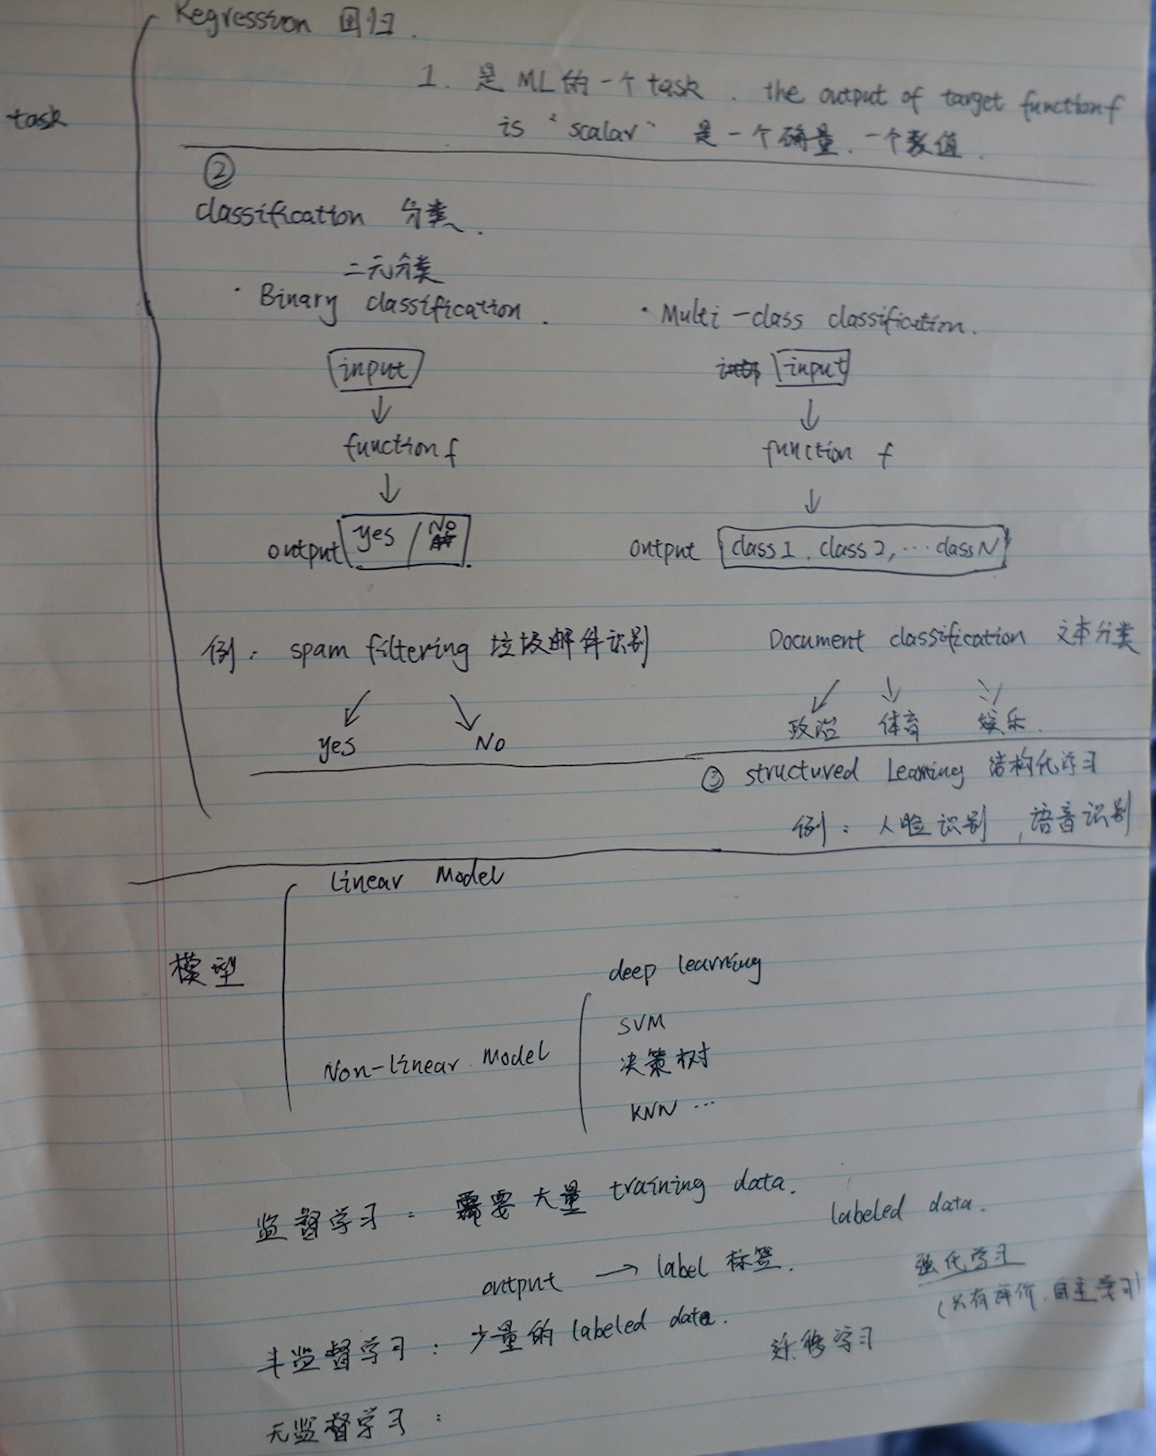 Regression 回归.
task
1. 是 ML 的一个 task. the output of target function f
is "scalar" 是一个确量、一个数值.
②
classification 分类.
二元分类
· Binary classification.
· Multi-class classification.
input
input
function f
function f
output yes / No
output class 1, class 2, ... class N
例. spam filtering 垃圾邮件识别
Document classification 文本分类
yes No
政治 体育 娱乐.
③ structured Learning 结构化学习
例: 人脸识别, 语音识别
Linear Model
模型
deep learning
SVM
Non-linear Model
决策树
KNN ...
监督学习: 需要大量 training data.
labeled data.
output → label 标签.
强化学习
(只有评价, 自主学习)
半监督学习: 少量的 labeled data.
迁移学习
无监督学习: